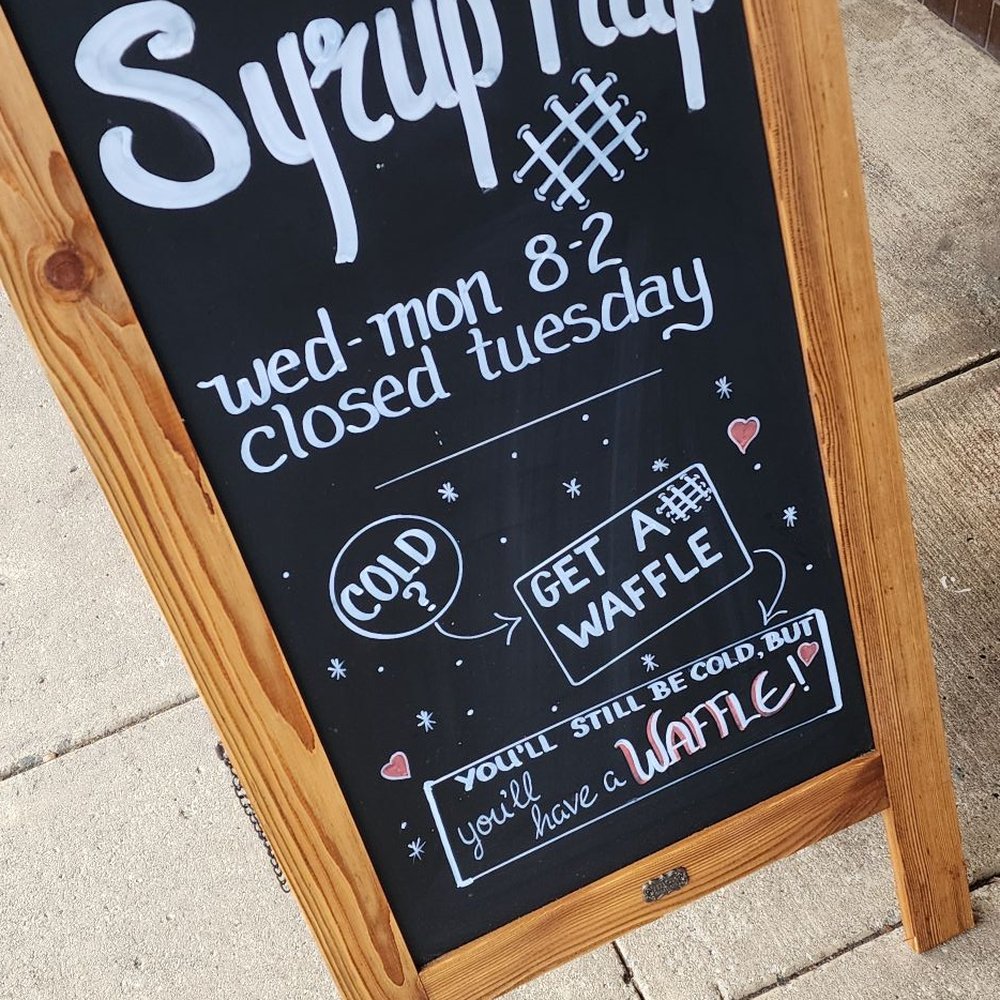 Syrup
wed-mon 8-2
closed tuesday
COLD
?
GET A
WAFFLE
YOU'LL STILL BE COLD, BUT
you'll
have a WAFFLE!